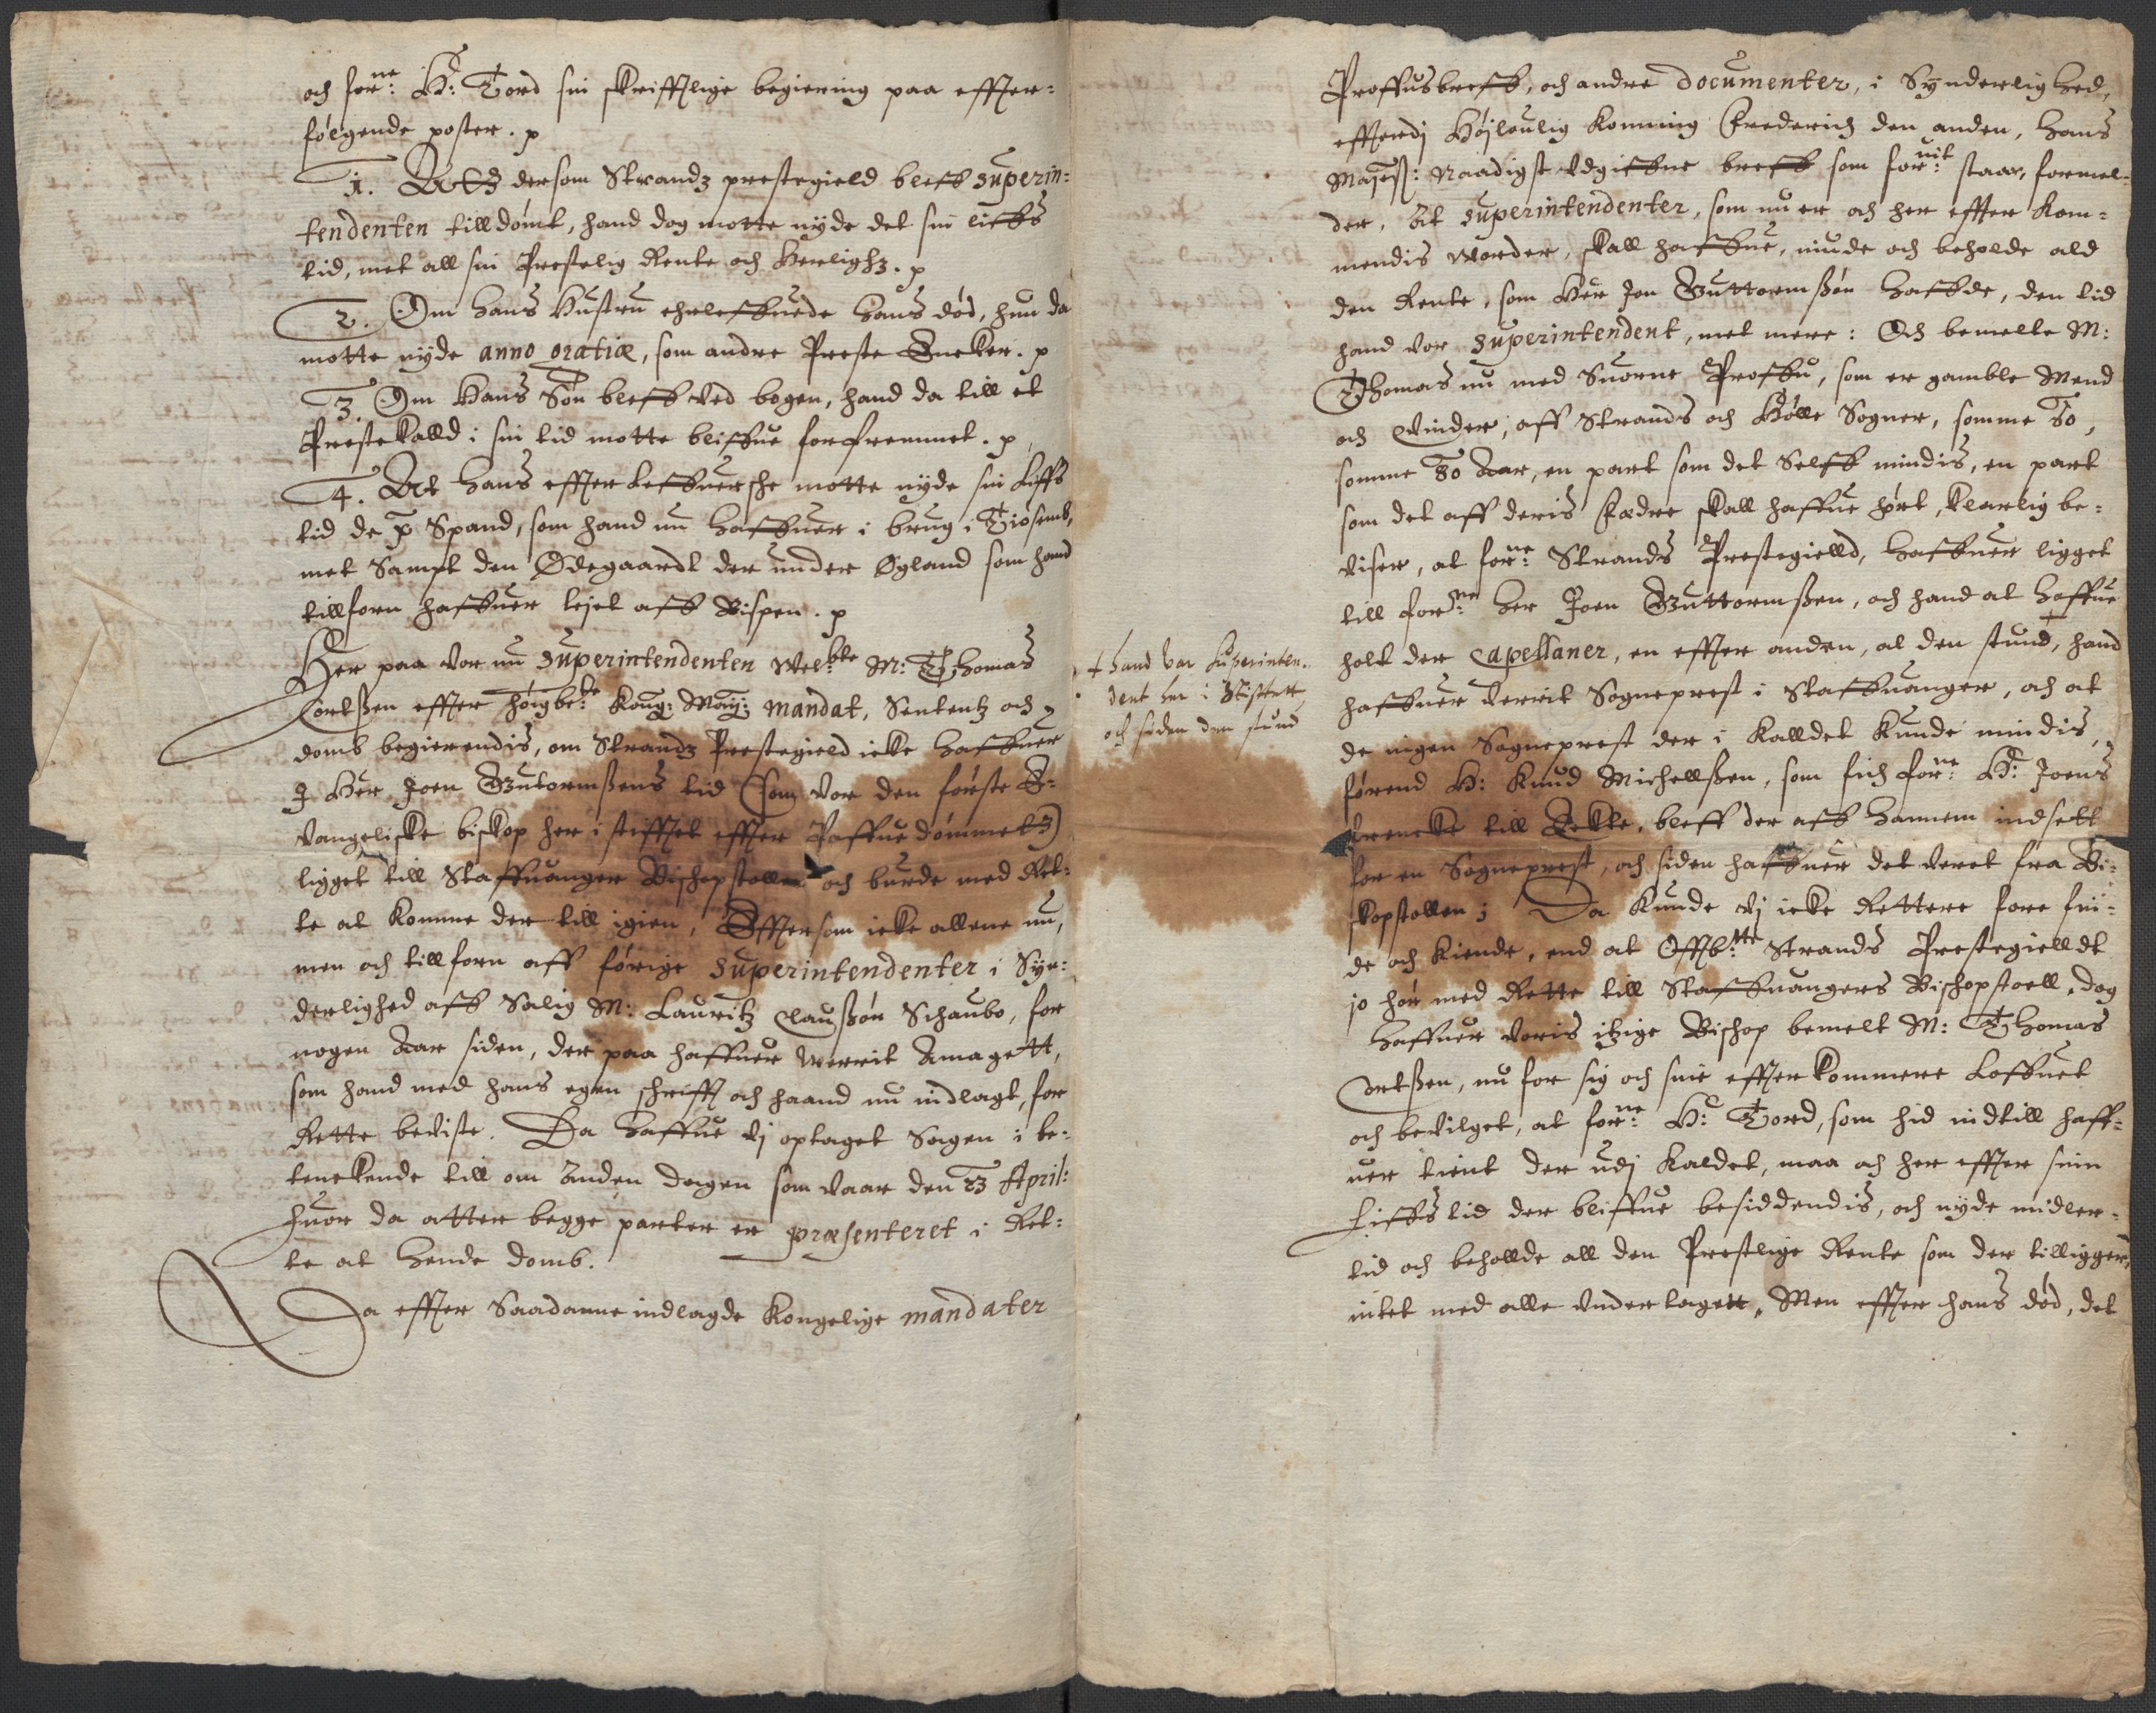 och forne: Hr: Tord sin skrifftlige begiering paa effter=
følgende poster. p
1. Att dersom Strandz prestegield bleff Superin=
tendenten tilldømt, hand dog motte nyde det sin liffs
tid, met all sin Prestelig Rente och Herlighz. p
2. Om hans Hustru ehrleffuede hans død, hun da
motte nyde anno gratiæ, som andre Preste Encker. p
3. Om Hans Søn bleff ved bogen, hand da till et
Prestekalld i sin tid motte bliffue forfremmet. p
4. At hans effterleffuersche motte nyde sin Liffs
tid de Spand, som hand nu haffuer i brug i
met Sampt den Ødegaardt der under Øgland som hand
tillforn haffuer lejet aff Bispen. p
Her paa vor nu Superintendenten Welbte M: Thomas
Cortßen effter høigbe: Kong: May: mandat, Sententz och
domb begierendis, om Strandz Prestegield icke haffuer
I Her Joen Gutormßens tid (som vor den første E=
vangeliske biskop her i stifftet effter Paffuedømmetz)
ligget till Staffuanger Bischopstollen och burde med Ret=
te at komme der till igien, Efftersom icke allene nu,
men och tillforn aff førige Superintendenter i Syn=
derlighed aff Salig M: Lauritz Claußøn Schaubo, for
nogen Aar siden, der paa haffuer werrit Anagett,
som hand med hans egen schrifft och haand nu indlagt, for
Rette beviste. Da haffue vj optaget Sagen i be=
tenckende till om Anden dagen som vaar den 23 April:
huor da atter begge parter er præsenteret i Ret=
te at hende domb.
Da effter Saadanne indlagde Kongelige mandater
† hand var Superinten-
dent her i Stifftett,
och siden den stund
Proffuebreff, och andre documenter, i Synderlighed,
effterdj Højlouflig Konning Frederich den anden, hans
Majest: Naadigst Udgiffne breff som fornit: staar, formel=
der, At Superintendenter, som nu er och her effter kom=
mendis worder, skall haffue, niude och beholde ald
den Rente, som Her Jon Guttormßøn haffde, den tid
hand vor Superintendent, met mere: Och bemelte M:
Thomas nu med Suorne Proffue, som er gamble Mend
och Qvinder, aff Strands och Hølle Sogner, somme 80,
somme 80 Aar, en part som det Selff mindis, en part
som det aff deris Fædre skall haffue hørt, klarlig be=
viser, at forne: Strands Prestegielld, haffuer ligget
till forne: Her Joen Guttormßen, och hand at haffue
holt der Capellaner, en effter anden, al den stund, † hand
haffuer verrit Sogneprest i Staffuanger, och at
de ingen Sogneprest der i Kalldet kunde mindis,
førend H: Knud Michellßen, som fich forne: Hr: Joens
till Ecte, bleff der aff hannem indsett
for en Sogneprest, och siden haffuer det veret fra Bi=
skopstollen; Da kunde vj icke Rettere fore fin=
de och kiende, end at Offtbte: Strands Prestegielldt
jo hør med Rette till Staffuangers Bischopstoell, dog
haffuer voris itzige Bischop bemelt M: Thomas
Cortßen, nu for sig och sine effterkommere Loffuet
och bevilget, at forne: Hr: Tord, som hid indtill haff=
uer tient der udj Kaldet, maa och her effter sinn
Liffs tid der bliffue besiddendis, och nyde midler=
tid och behollde all den Prestlige Rente som der tilligger,
intet med alle undertagett, Men effter hans død, det